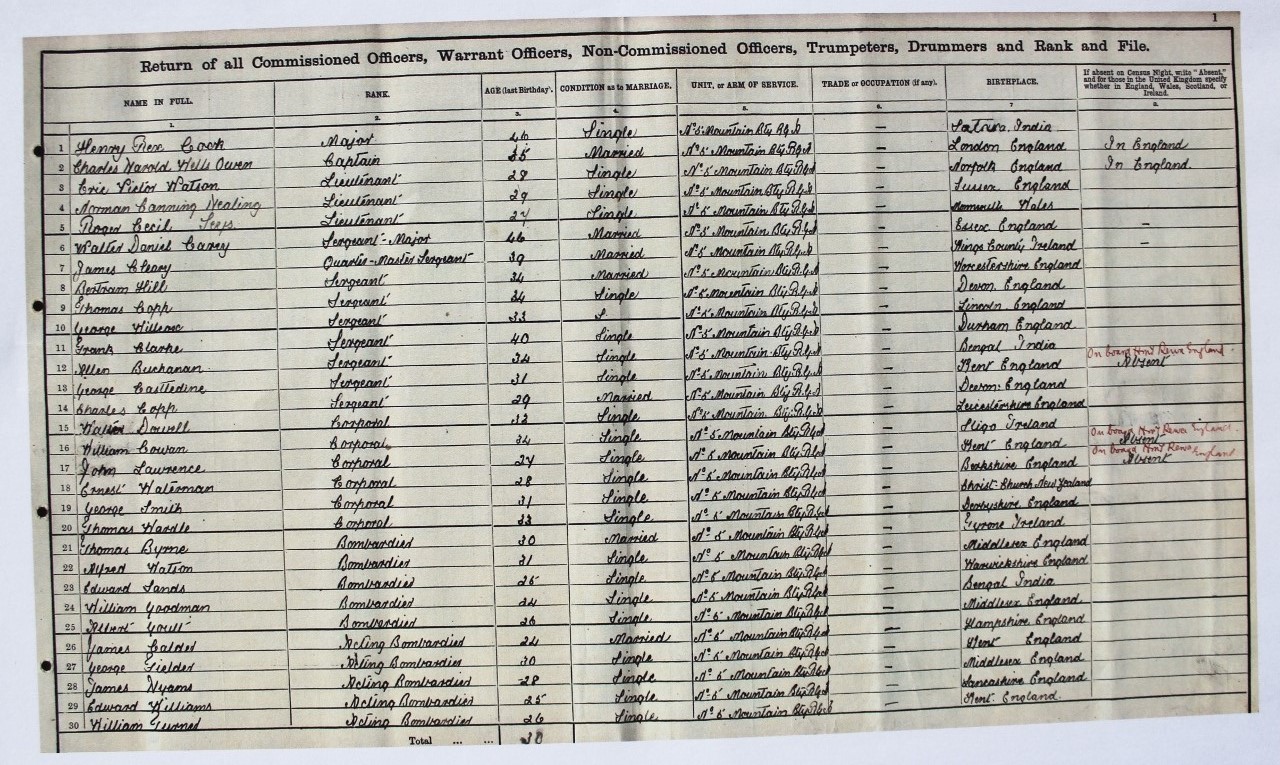 1
Return of all Commissioned Officers, Warrant Officers, Non-Commissioned Officers, Trumpeters, Drummers and Rank and File.
NAME IN FULL. RANK. AGE (last Birthday). CONDITION as to MARRIAGE. UNIT, OR ARM OF SERVICE. TRADE OR OCCUPATION (if any). BIRTHPLACE. If absent on Census Night, write "Absent," and for those in the United Kingdom specify whether in England, Wales, Scotland, or Ireland.
1. 2. 3. 4. 5. 6. 7 8.
1 Henry Rex Cock Major 46 Single No 5 Mountain Bty R.G.A — India
2 Charles Harold Wells Owen Captain 35 Married No 5 Mountain Bty R.G.A — London England In England
3 Eric Victor Watson Lieutenant 28 Single No 5 Mountain Bty R.G.A — Norfolk England In England
4 Norman Canning Lieutenant 29 Single No 5 Mountain Bty R.G.A — Sussex England
5 Roger Cecil Lieutenant 27 Single No 5 Mountain Bty R.G.A — Wales
6 Walter Daniel Carey Sergeant-Major 46 Married No 5 Mountain Bty R.G.A — Essex England —
7 James Cleary Quarter-Master Sergeant 39 Married No 5 Mountain Bty R.G.A — Kings County Ireland —
8 Bertram Hill Sergeant 34 Married No 5 Mountain Bty R.G.A — Worcestershire England
9 Thomas Copp Sergeant 34 Single No 5 Mountain Bty R.G.A — Devon England
10 George Sergeant 33 S. No 5 Mountain Bty R.G.A — Lincoln England
11 Frank Clarke Sergeant 40 Single No 5 Mountain Bty R.G.A — Durham England
12 Allen Buchanan Sergeant 34 Single No 5 Mountain Bty R.G.A — Bengal India On board Hmt Rewa England. Absent
13 George Castledine Sergeant 31 Single No 5 Mountain Bty R.G.A — Kent England
14 Charles Copp Sergeant 29 Married No 5 Mountain Bty R.G.A — Devon England
15 Walter Dowell Corporal 33 Single No 5 Mountain Bty R.G.A — Leicestershire England
16 William Cowan Corporal 34 Single No 5 Mountain Bty R.G.A — Sligo Ireland On board Hmt Rewa England. Absent
17 John Lawrence Corporal 27 Single No 5 Mountain Bty R.G.A — Kent England On board Hmt Rewa England Absent
18 Ernest Waterman Corporal 28 Single No 5 Mountain Bty R.G.A — Berkshire England
19 George Smith Corporal 31 Single No 5 Mountain Bty R.G.A — Christ-Church New Zealand
20 Thomas Wardle Corporal 33 Single No 5 Mountain Bty R.G.A — Derbyshire England
21 Thomas Byrne Bombardier 30 Married No 5 Mountain Bty R.G.A — Tyrone Ireland
22 Alfred Watson Bombardier 31 Single No 5 Mountain Bty R.G.A — Middlesex England
23 Edward Sands Bombardier 25 Single No 5 Mountain Bty R.G.A — Warwickshire England
24 William Goodman Bombardier 24 Single No 5 Mountain Bty R.G.A — Bengal India
25 Albert Bombardier 26 Single No 5 Mountain Bty R.G.A — Middlesex England
26 James Calder Acting Bombardier 24 Married No 5 Mountain Bty R.G.A — Hampshire England
27 George Fielder Acting Bombardier 30 Single No 5 Mountain Bty R.G.A — Kent England
28 James Hyams Acting Bombardier 28 Single No 5 Mountain Bty R.G.A — Middlesex England
29 Edward Williams Acting Bombardier 25 Single No 5 Mountain Bty R.G.A — Lancashire England
30 William Turner Acting Bombardier 26 Single No 5 Mountain Bty R.G.A — Kent England
Total ... ... 30